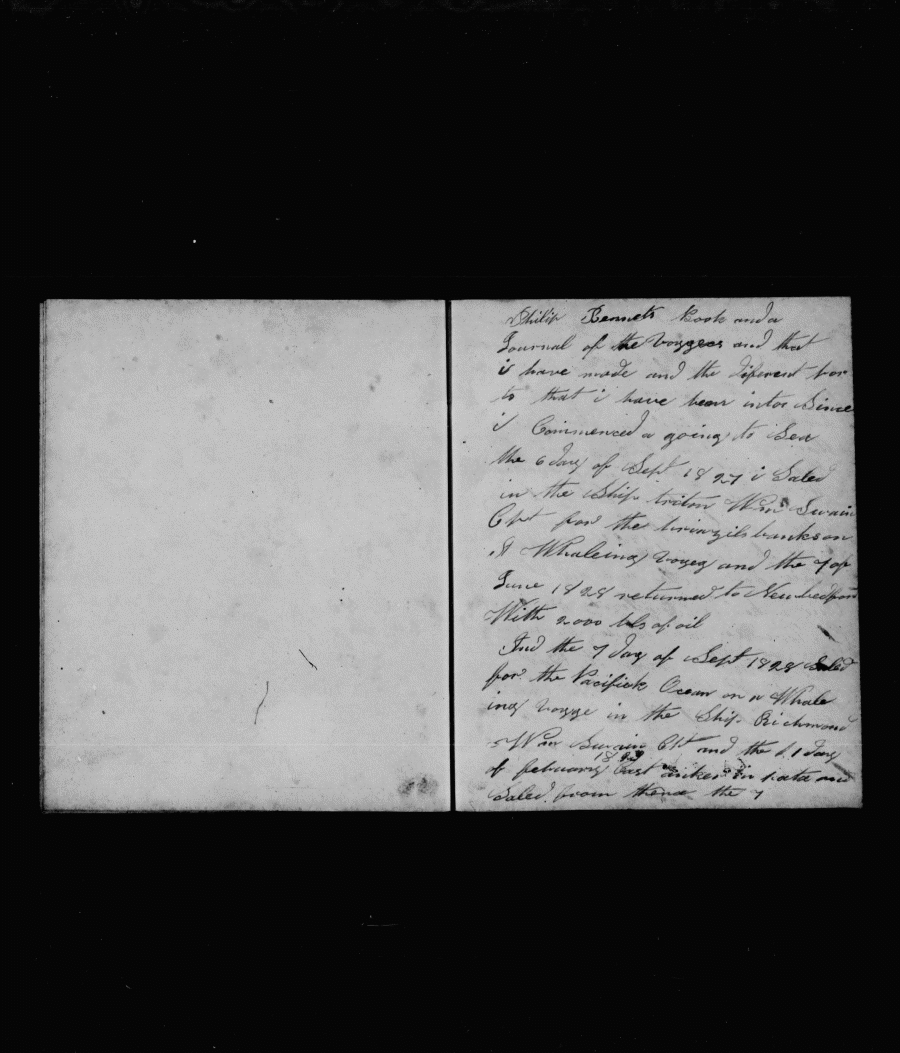 Philip Bennets Book and a
Journal of the Voyges and that
i have made and the diferent por
ts that i have bean intoo Since
i Commenced a going to Sea
the 6 day of Sept 1827 i Saled
in the Ship triton Wm Swain
Cpt for the banks on
A Whaleing Voyeg and the 7 of
June 1828 returned to New bedford
With 2000 bls of oil
And the 7 day of Sept 1828 Saled
for the Pacifick Ocean on a Whale
ing Voyge in the Ship Richmond
Wm Swain Cpt and the 11 day
of february 1829 Cast anker in and
Saled from thence the 7